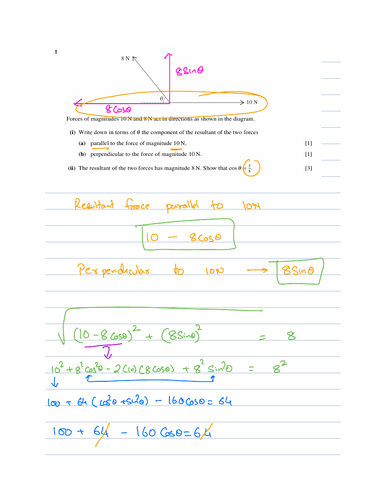 1
8 N
8Sinθ
θ
8Cosθ
10 N
Forces of magnitudes 10 N and 8 N act in directions as shown in the diagram.
(i) Write down in terms of θ the component of the resultant of the two forces
(a) parallel to the force of magnitude 10 N, [1]
(b) perpendicular to the force of magnitude 10 N. [1]
(ii) The resultant of the two forces has magnitude 8 N. Show that cos θ = 5/8. [3]
Resultant force parallel to 10N
10 - 8Cosθ
Perpendicular to 10N → 8Sinθ
√(10-8Cosθ)² + (8Sinθ)² = 8
10² + 8²Cos²θ - 2(10)(8Cosθ) + 8²Sin²θ = 8²
100 + 64 (Cos²θ + Sin²θ) - 160Cosθ = 64
100 + 64 - 160Cosθ = 64